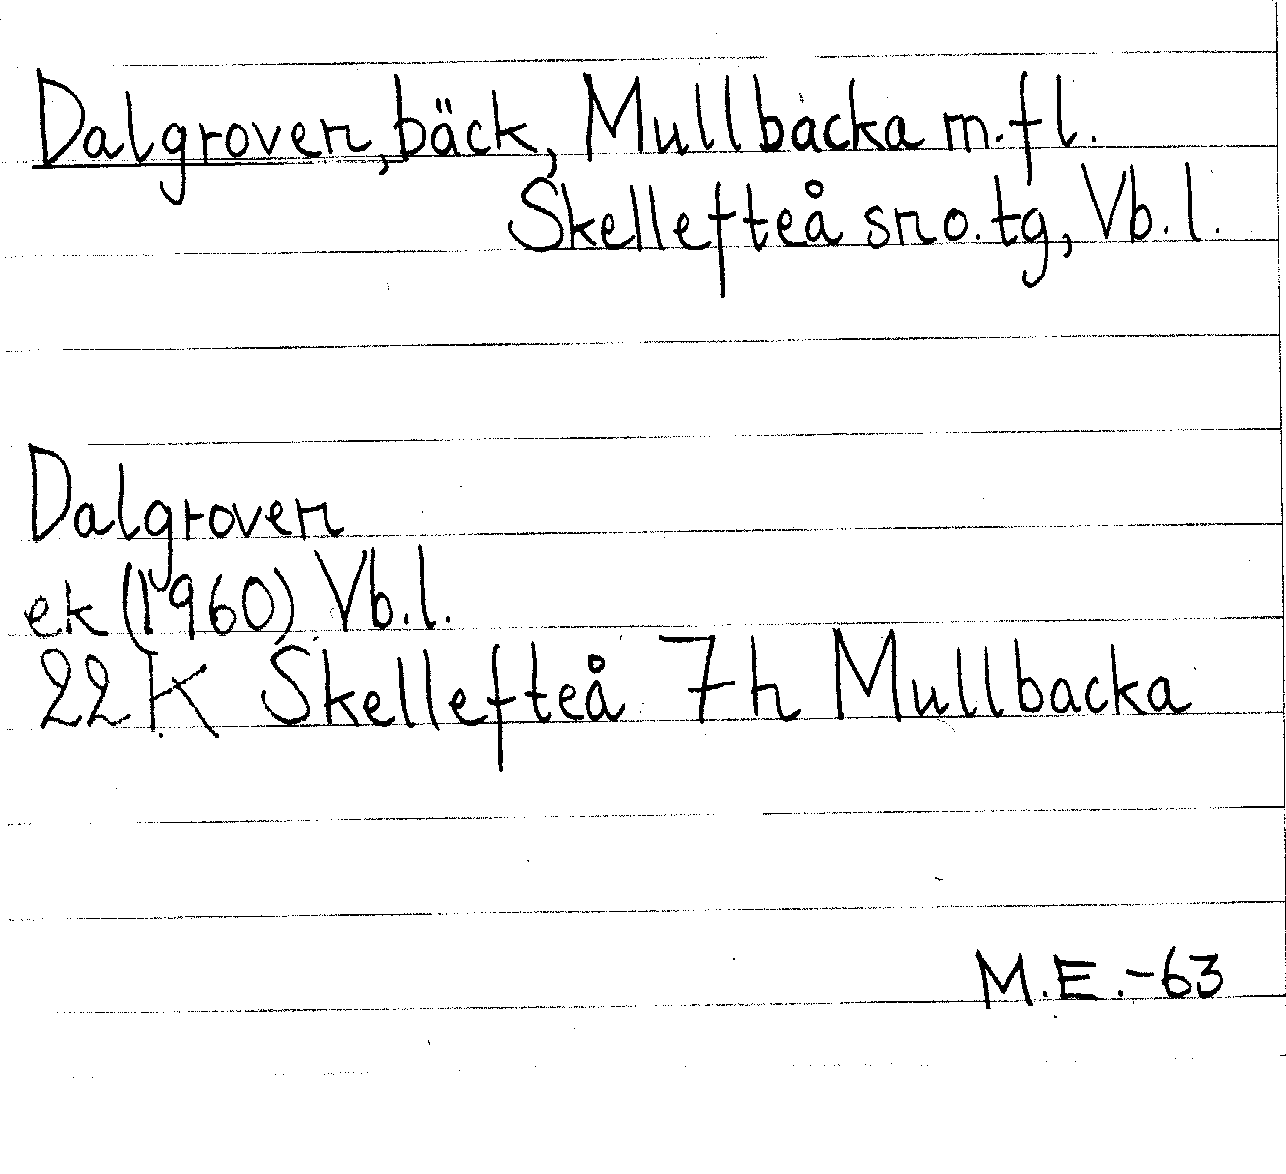 Dalgroven, bäck, Mullbacka m.fl.
Skellefteå sn o. tg, Vb.l.
Dalgroven
ek (1960) Vb.l.
22 K Skellefteå 7h Mullbacka
M.E.-63